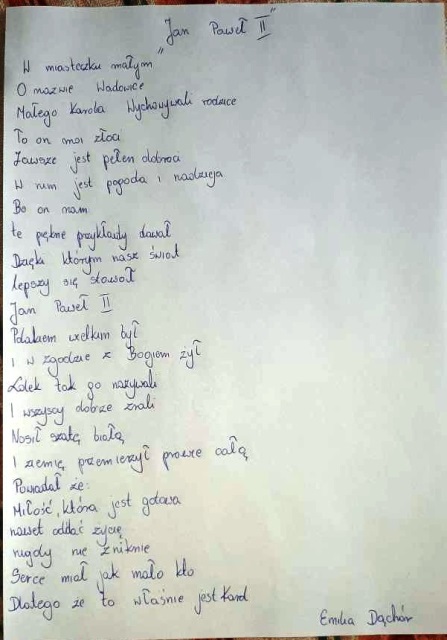 "Jan Paweł II"
W miasteczku małym
O nazwie Wadowice
Małego Karola Wychowywali rodzice
To on moi złoci
Zawsze jest pełen dobroci
W nim jest pogoda i nadzieja
Bo on nam
te piękne przykłady dawał
Dzięki którym nasz świat
lepszy się stawał
Jan Paweł II
Polakiem wielkim był
i w zgodzie z Bogiem żył
Lolek tak go nazywali
I wszyscy dobrze znali
Nosił szatę białą
I ziemię przemierzył prawie całą
Powiadał że:
Miłość, która jest gotowa
nawet oddać życie
nigdy nie zniknie
Serce miał jak mało kto
Dlatego że to właśnie jest Karol
Emilia Dąchór